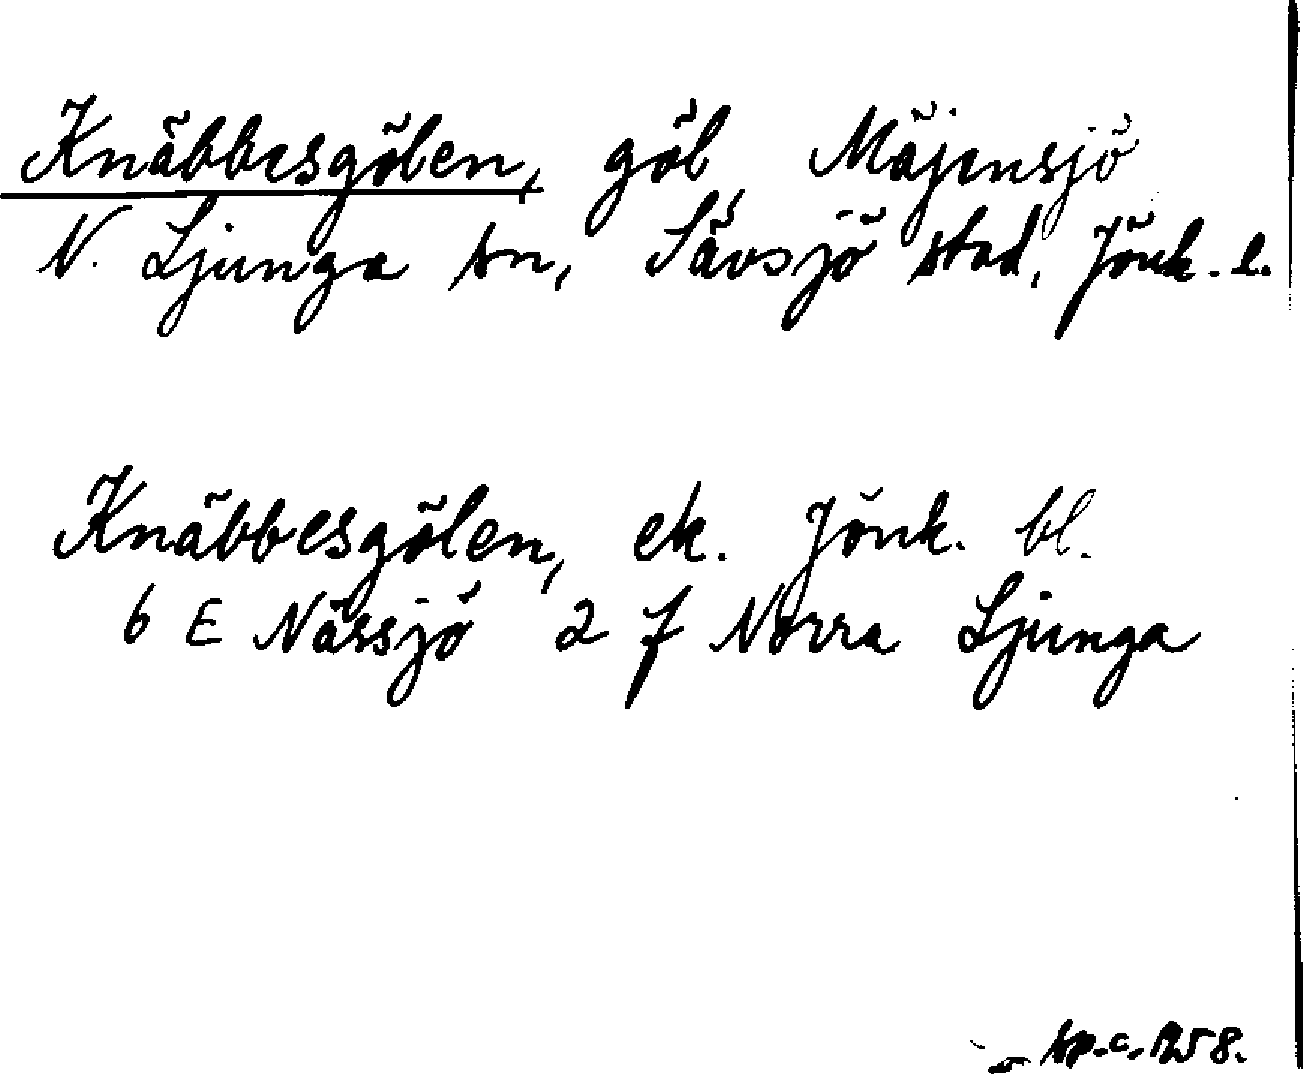 Knäbbesgölen, göl, Mäjensjö
N. Ljunga sn, Sävsjö stad, Jönk. l.
Knäbbesgölen, ek. Jönk. bl.
6 E Nässjö 2 f Norra Ljunga